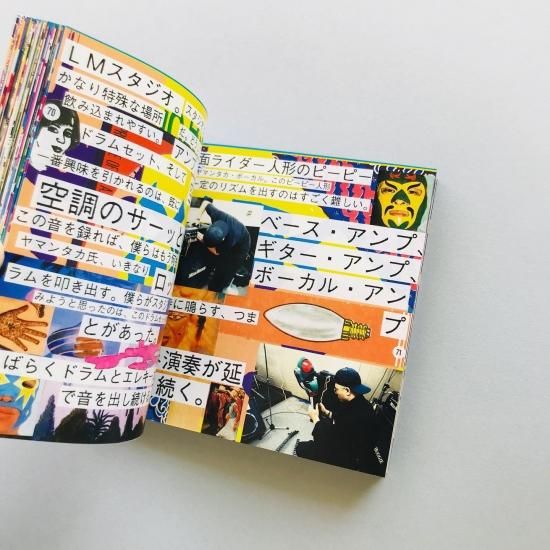 LMスタジオ。
かなり特殊な場所
飲み込まれやすい。
70
ドラムセット、そして
一番興味を引かれるのは、既に
空調のサーッと
この音を録れば、僕らはもう
ヤマンタカ氏、いきなり
ラムを叩き出す。僕らがスタジ
みようと思ったのは、このドラム
とがあった。
ばらくドラムとエレ
で音を出し続け
面ライダー人形のピーピー
ヤマンタカ・ボーカル。このピーピー人形
一定のリズムを出すのはすごく難しい。
ベース・アンプ
ギター・アンプ、
ボーカル・アン
プ
に鳴らす、つま
71
演奏が延
続く。